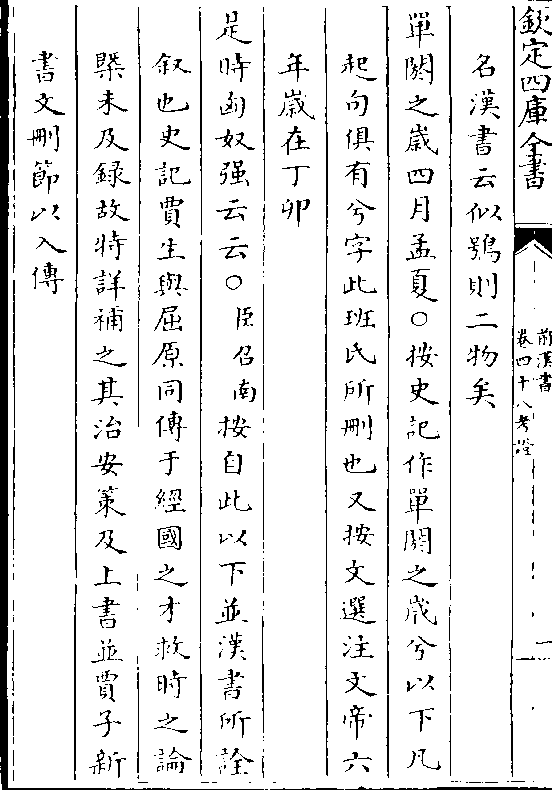 欽定四庫全書
前漢書
卷四十八考證
一
名漢書云似鴞則二物矣
單閼之歲四月孟夏○按史記作單閼之歲兮以下凡
起句俱有兮字此班氏所刪也又按文選注文帝六
年歲在丁卯
是時匈奴强云云○臣召南按自此以下並漢書所詮
叙也史記賈生與屈原同傳于經國之才救時之論
槩未及録故特詳補之其治安策及上書並賈子新
書文刪節以入傳